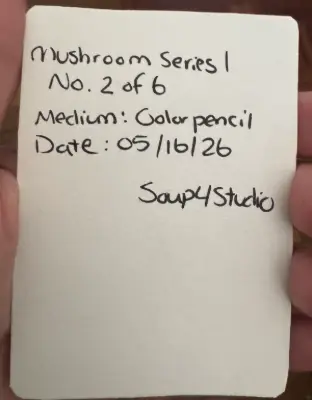 Mushroom Series 1
No. 2 of 6
Medium: Color pencil
Date: 05/16/26
Soup4Studio